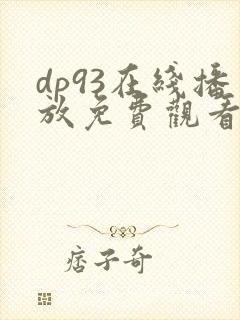 dp93在綫播
放免費觀看
痞子奇